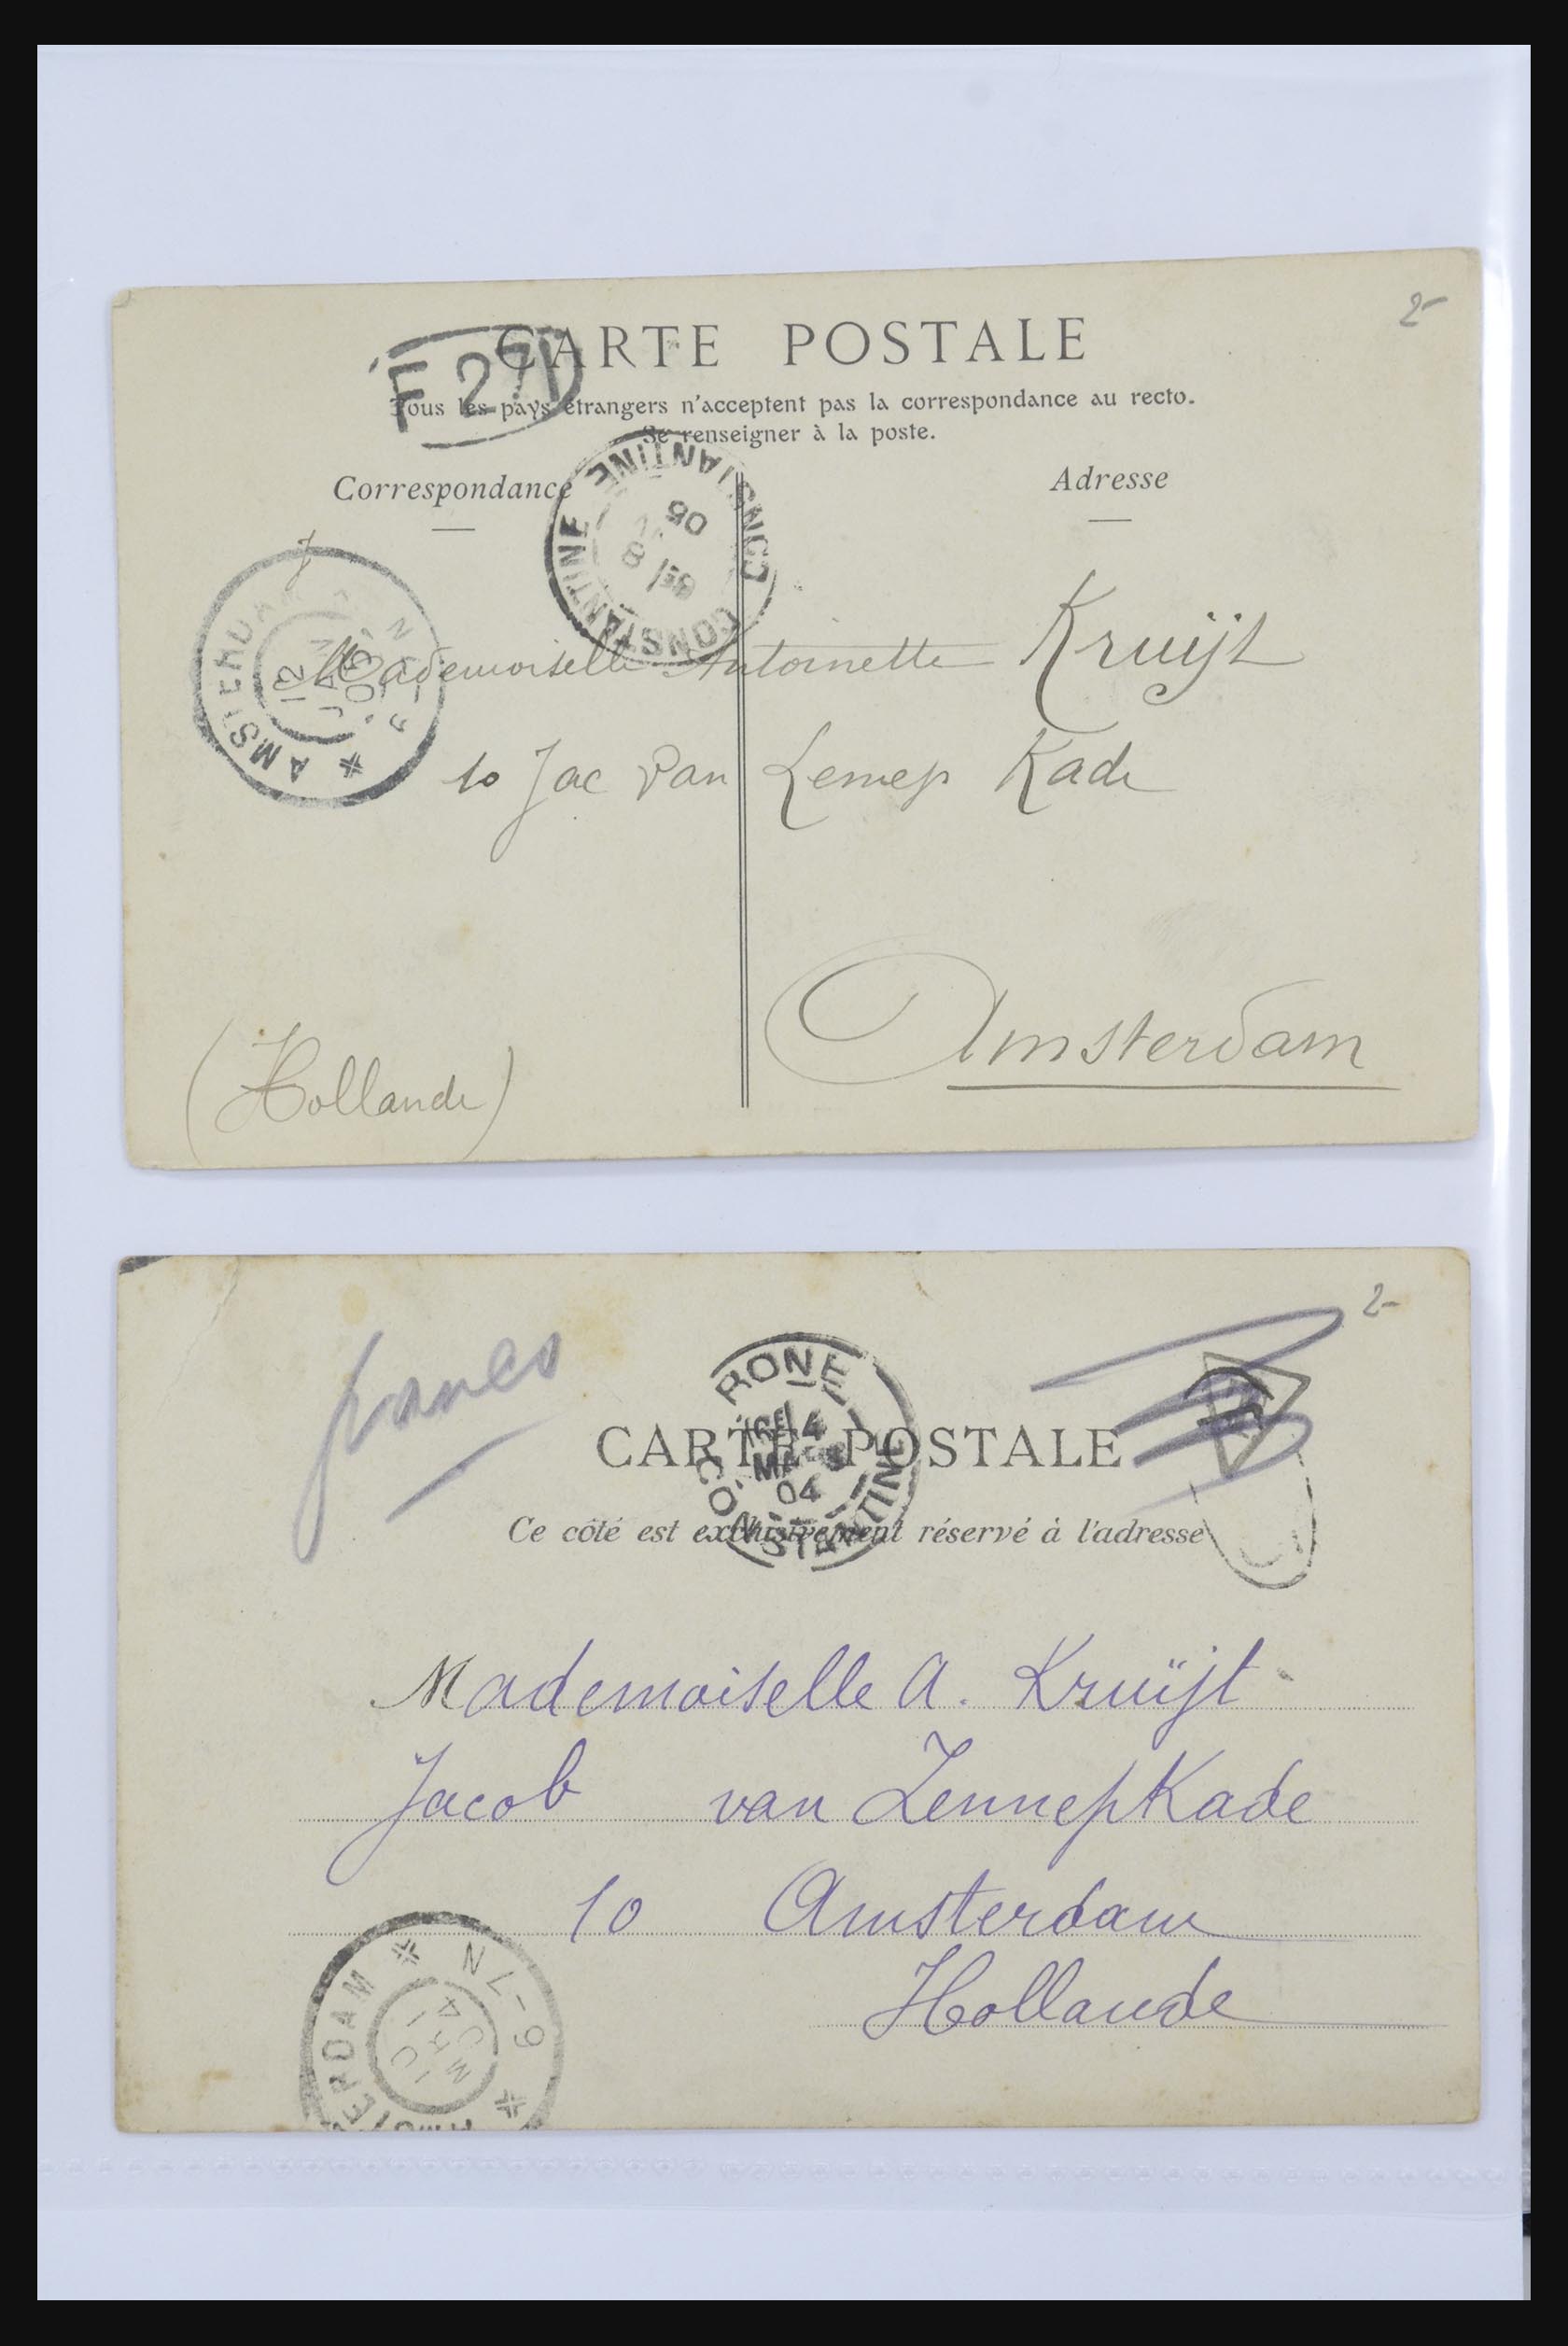 2-
CARTE POSTALE
F 27
Tous les pays étrangers n'acceptent pas la correspondance au recto.
Se renseigner à la poste.
Correspondance
Adresse
CONSTANTINE CONSTANTINE
8 05
AMSTERDAM
12 JAN 05
Mademoiselle Antoinette Kruijt
10 Jac Van Lennep Kade
Amsterdam
(Hollande)
2-
RONE
CONSTANTINE
16E/4
MARS
04
CARTE POSTALE
Ce côté est exclusivement réservé à l'adresse
Mademoiselle A. Kruijt
Jacob van Lennep Kade
10 Amsterdam
Hollande
AMSTERDAM
6-7N
10 MRT 4